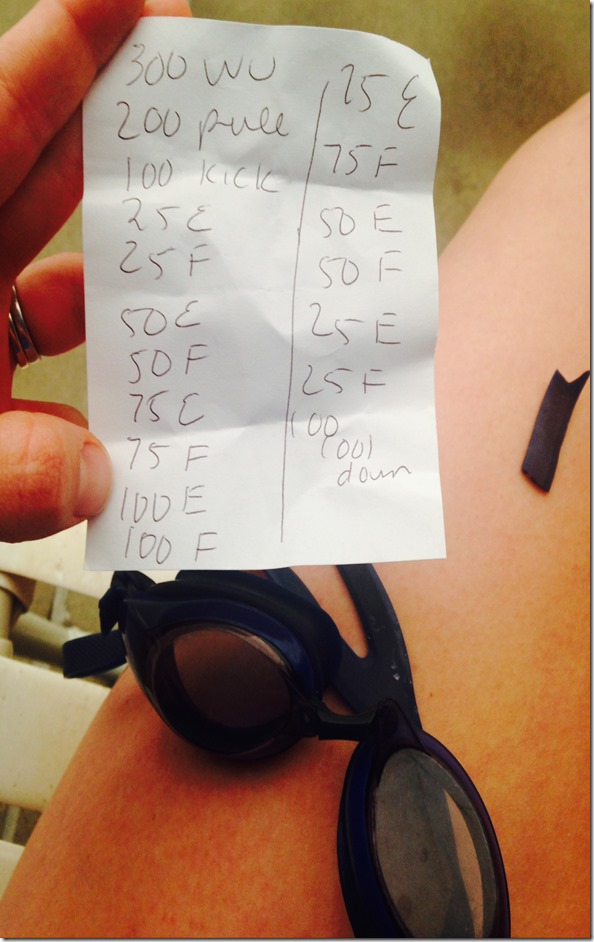 300 WU
200 pull
100 kick
25 E
25 F
50 E
50 F
75 E
75 F
100 E
100 F
75 E
75 F
50 E
50 F
25 E
25 F
100
cool
down